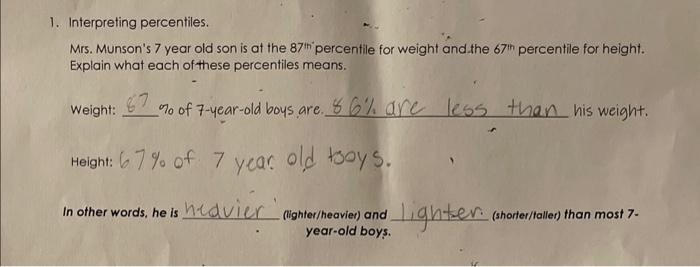 1. Interpreting percentiles.
Mrs. Munson's 7 year old son is at the 87th percentile for weight and the 67th percentile for height.
Explain what each of these percentiles means.
Weight: 87 % of 7-year-old boys are 86% are less than his weight.
Height: 67% of 7 year old boys.
In other words, he is heavier (lighter/heavier) and lighter (shorter/taller) than most 7-
year-old boys.